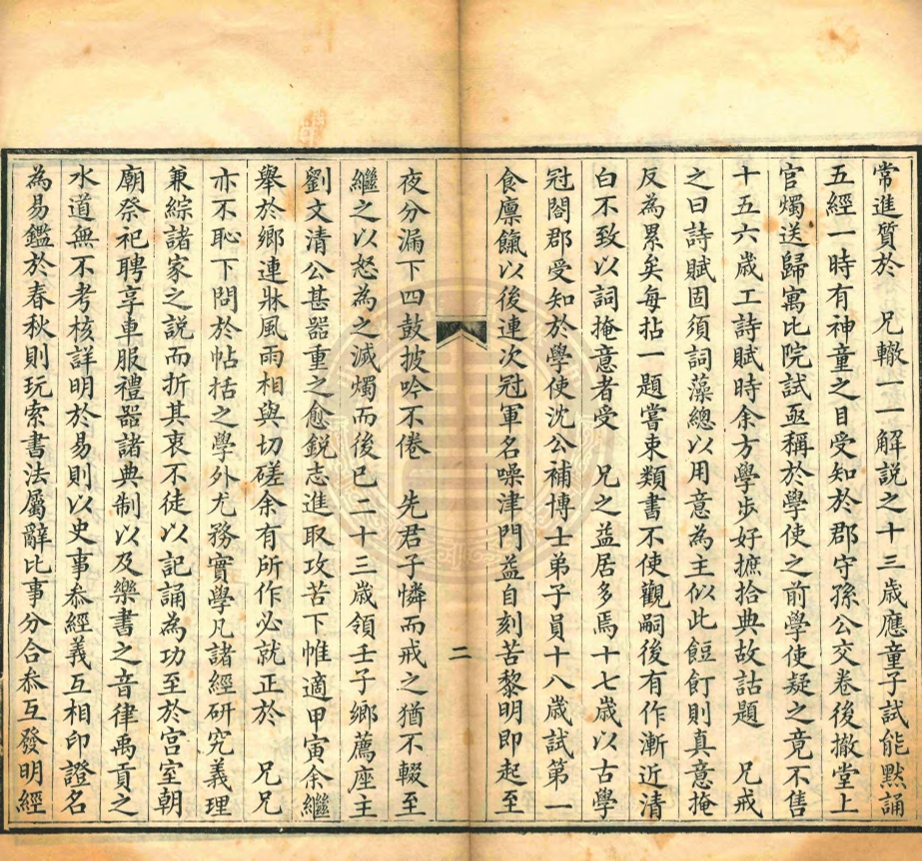 常進質於　兄轍一一解説之十三歲應童子試能默誦
五經一時有神童之目受知於郡守孫公交卷後撤堂上
官燭送歸寓比院試亟稱於學使之前學使疑之竟不售
十五六歲工詩賦時余方學步好摭拾典故詁題　兄戒
之曰詩賦固須詞藻總以用意為主似此餖飣則真意掩
反為累矣每拈一題嘗束類書不使觀嗣後有作漸近清
白不致以詞掩意者受　兄之益居多焉十七歲以古學
冠閤郡受知於學使沈公補博士弟子員十八歲試第一
食廩餼以後連次冠軍名噪津門益自刻苦黎明即起至
二
夜分漏下四鼓披吟不倦　先君子憐而戒之猶不輟至
繼之以怒為之滅燭而後已二十三歲領壬子鄉薦座主
劉文清公甚器重之愈鋭志進取攻苦下帷適甲寅余繼
舉於鄉連牀風雨相與切磋余有所作必就正於　兄兄
亦不恥下問於帖括之學外尤務實學凡諸經研究義理
兼綜諸家之説而折其衷不徒以記誦為功至於宫室朝
廟祭祀聘享車服禮器諸典制以及樂書之音律禹貢之
水道無不考核詳明於易則以史事叅經義互相印證名
為易鑑於春秋則玩索書法屬辭比事分合叅互發明經